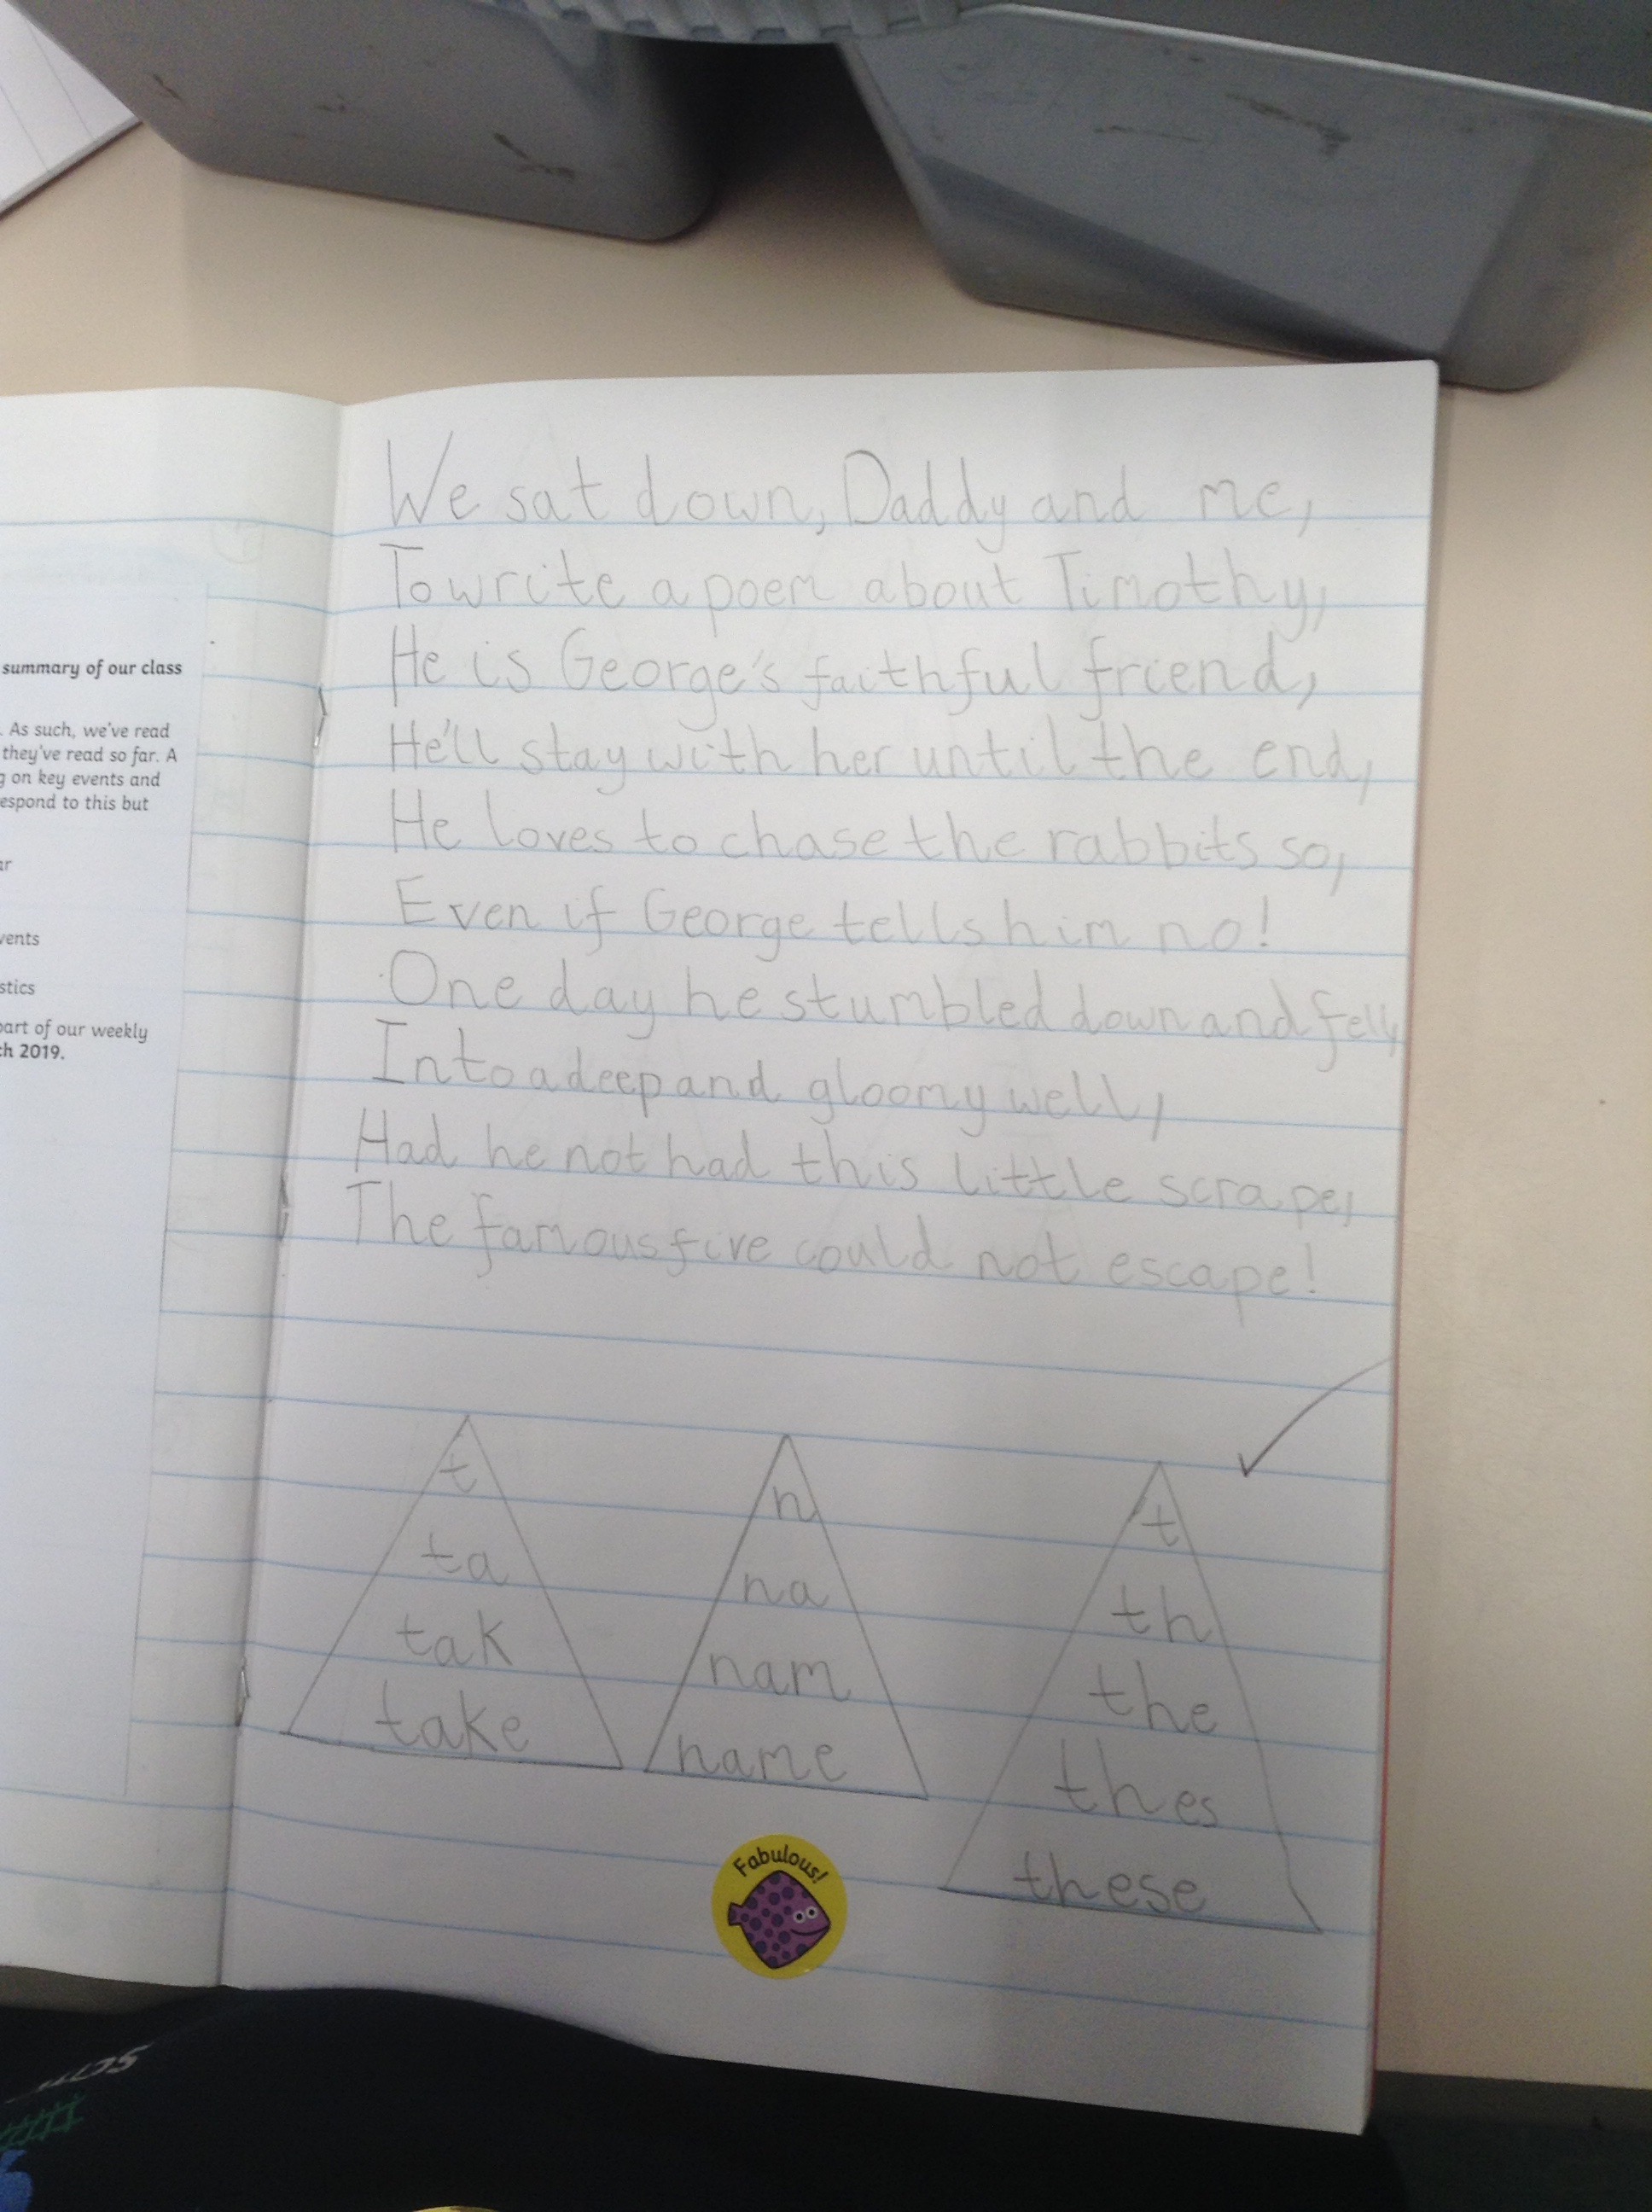 summary of our class
. As such, we've read
they've read so far. A
g on key events and
espond to this but
ar
vents
stics
part of our weekly
ch 2019.
We sat down, Daddy and me,
To write a poem about Timothy,
He is George's faithful friend,
He'll stay with her until the end,
He loves to chase the rabbits so,
Even if George tells him no!
One day he stumbled down and fell,
Into a deep and gloomy well,
Had he not had this little scrape,
The famous five could not escape!
t
ta
tak
take
n
na
nam
name
t
th
the
thes
these
Fabulous!